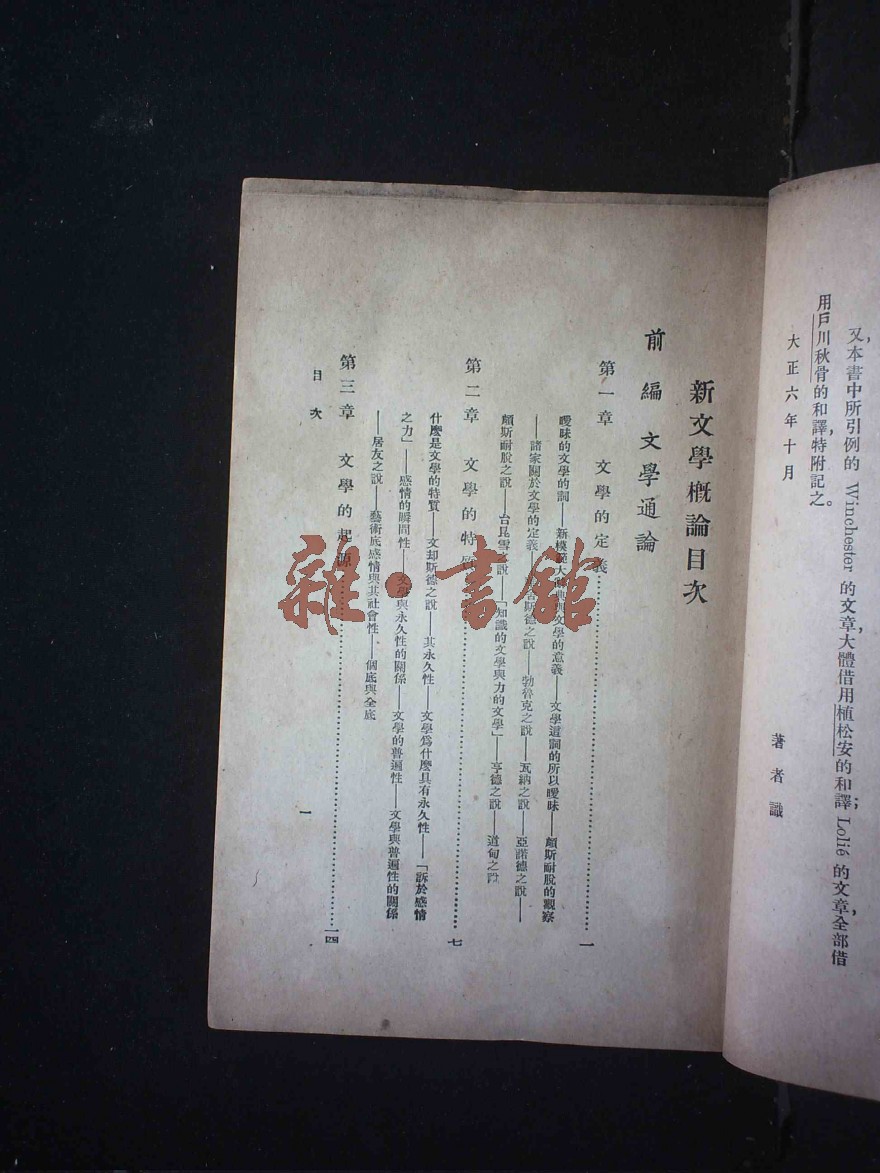 又,本書中所引例的 Winchester 的文章,大體借用植松安的和譯; Lolié 的文章,全部借
用戸川秋骨的和譯,特附記之。
大正六年十月
著者識
新文學概論目次
前編 文學通論
第一章 文學的定義……一
曖昧的文學的詞——新模範大辭典與文學的意義——文學這詞的所以曖昧——頗斯耐脫的觀察
——諸家關於文學的定義——吳斯德之說——勃魯克之說——瓦納之說——亞諾德之說——
頗斯耐脫之說——台昆雪之說——「知識的文學與力的文學」——亨德之說——道甸之說
第二章 文學的特質……七
什麼是文學的特質——文却斯德之說——其永久性——文學爲什麼具有永久性——「訴於感情
之力」——感情的瞬間性——文學與永久性的關係——文學的普遍性——文學與普遍性的關係
——居友之說——藝術底感情與其社會性——個底與全底
第三章 文學的起源……一四
目次
一
雜·書館